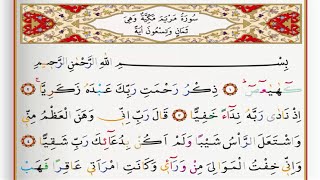 سُورَةُ مَرْيَمَ مَكِّيَّةٌ وَهِيَ
ثَمَانٍ وَتِسْعُونَ آيَةً
بِسْمِ اللّٰهِ الرَّحْمٰنِ الرَّحِيْمِ
كٓهٰيٰعٓصٓ ۝١ ذِكْرُ رَحْمَتِ رَبِّكَ عَبْدَهٗ زَكَرِيَّا ۝٢
اِذْ نَادٰى رَبَّهٗ نِدَآءً خَفِيًّا ۝٣ قَالَ رَبِّ اِنِّيْ وَهَنَ الْعَظْمُ مِنِّيْ
وَاشْتَعَلَ الرَّأْسُ شَيْبًا وَّلَمْ اَكُنْۢ بِدُعَآئِكَ رَبِّ شَقِيًّا ۝٤
وَاِنِّيْ خِفْتُ الْمَوَالِيَ مِنْ وَّرَآءِيْ وَكَانَتِ امْرَاَتِيْ عَاقِرًا فَهَبْ